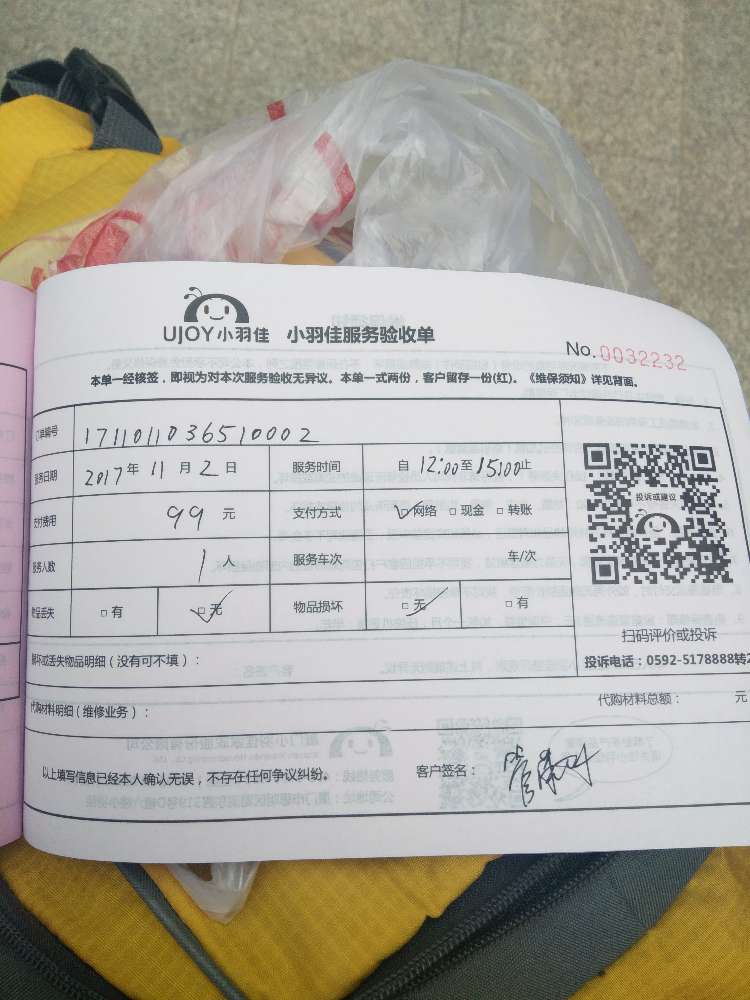 UJOY小羽佳 小羽佳服务验收单
No.0032232
本单一经核签，即视为对本次服务验收无异议。本单一式两份，客户留存一份(红)。《维保须知》详见背面。
订单编号 1711011036510002
服务日期 2017年11月2日 服务时间 自12:00至15:00止
支付费用 99元 支付方式 ☑网络 □现金 □转账
服务人数 1人 服务车次 车/次
物品丢失 □有 ☑无 物品损坏 ☑无 □有
投诉或建议
扫码评价或投诉
投诉电话：0592-5178888转2
损坏或丢失物品明细（没有可不填）：
代购材料明细（维修业务）： 代购材料总额： 元
以上填写信息已经本人确认无误，不存在任何争议纠纷。 客户签名：